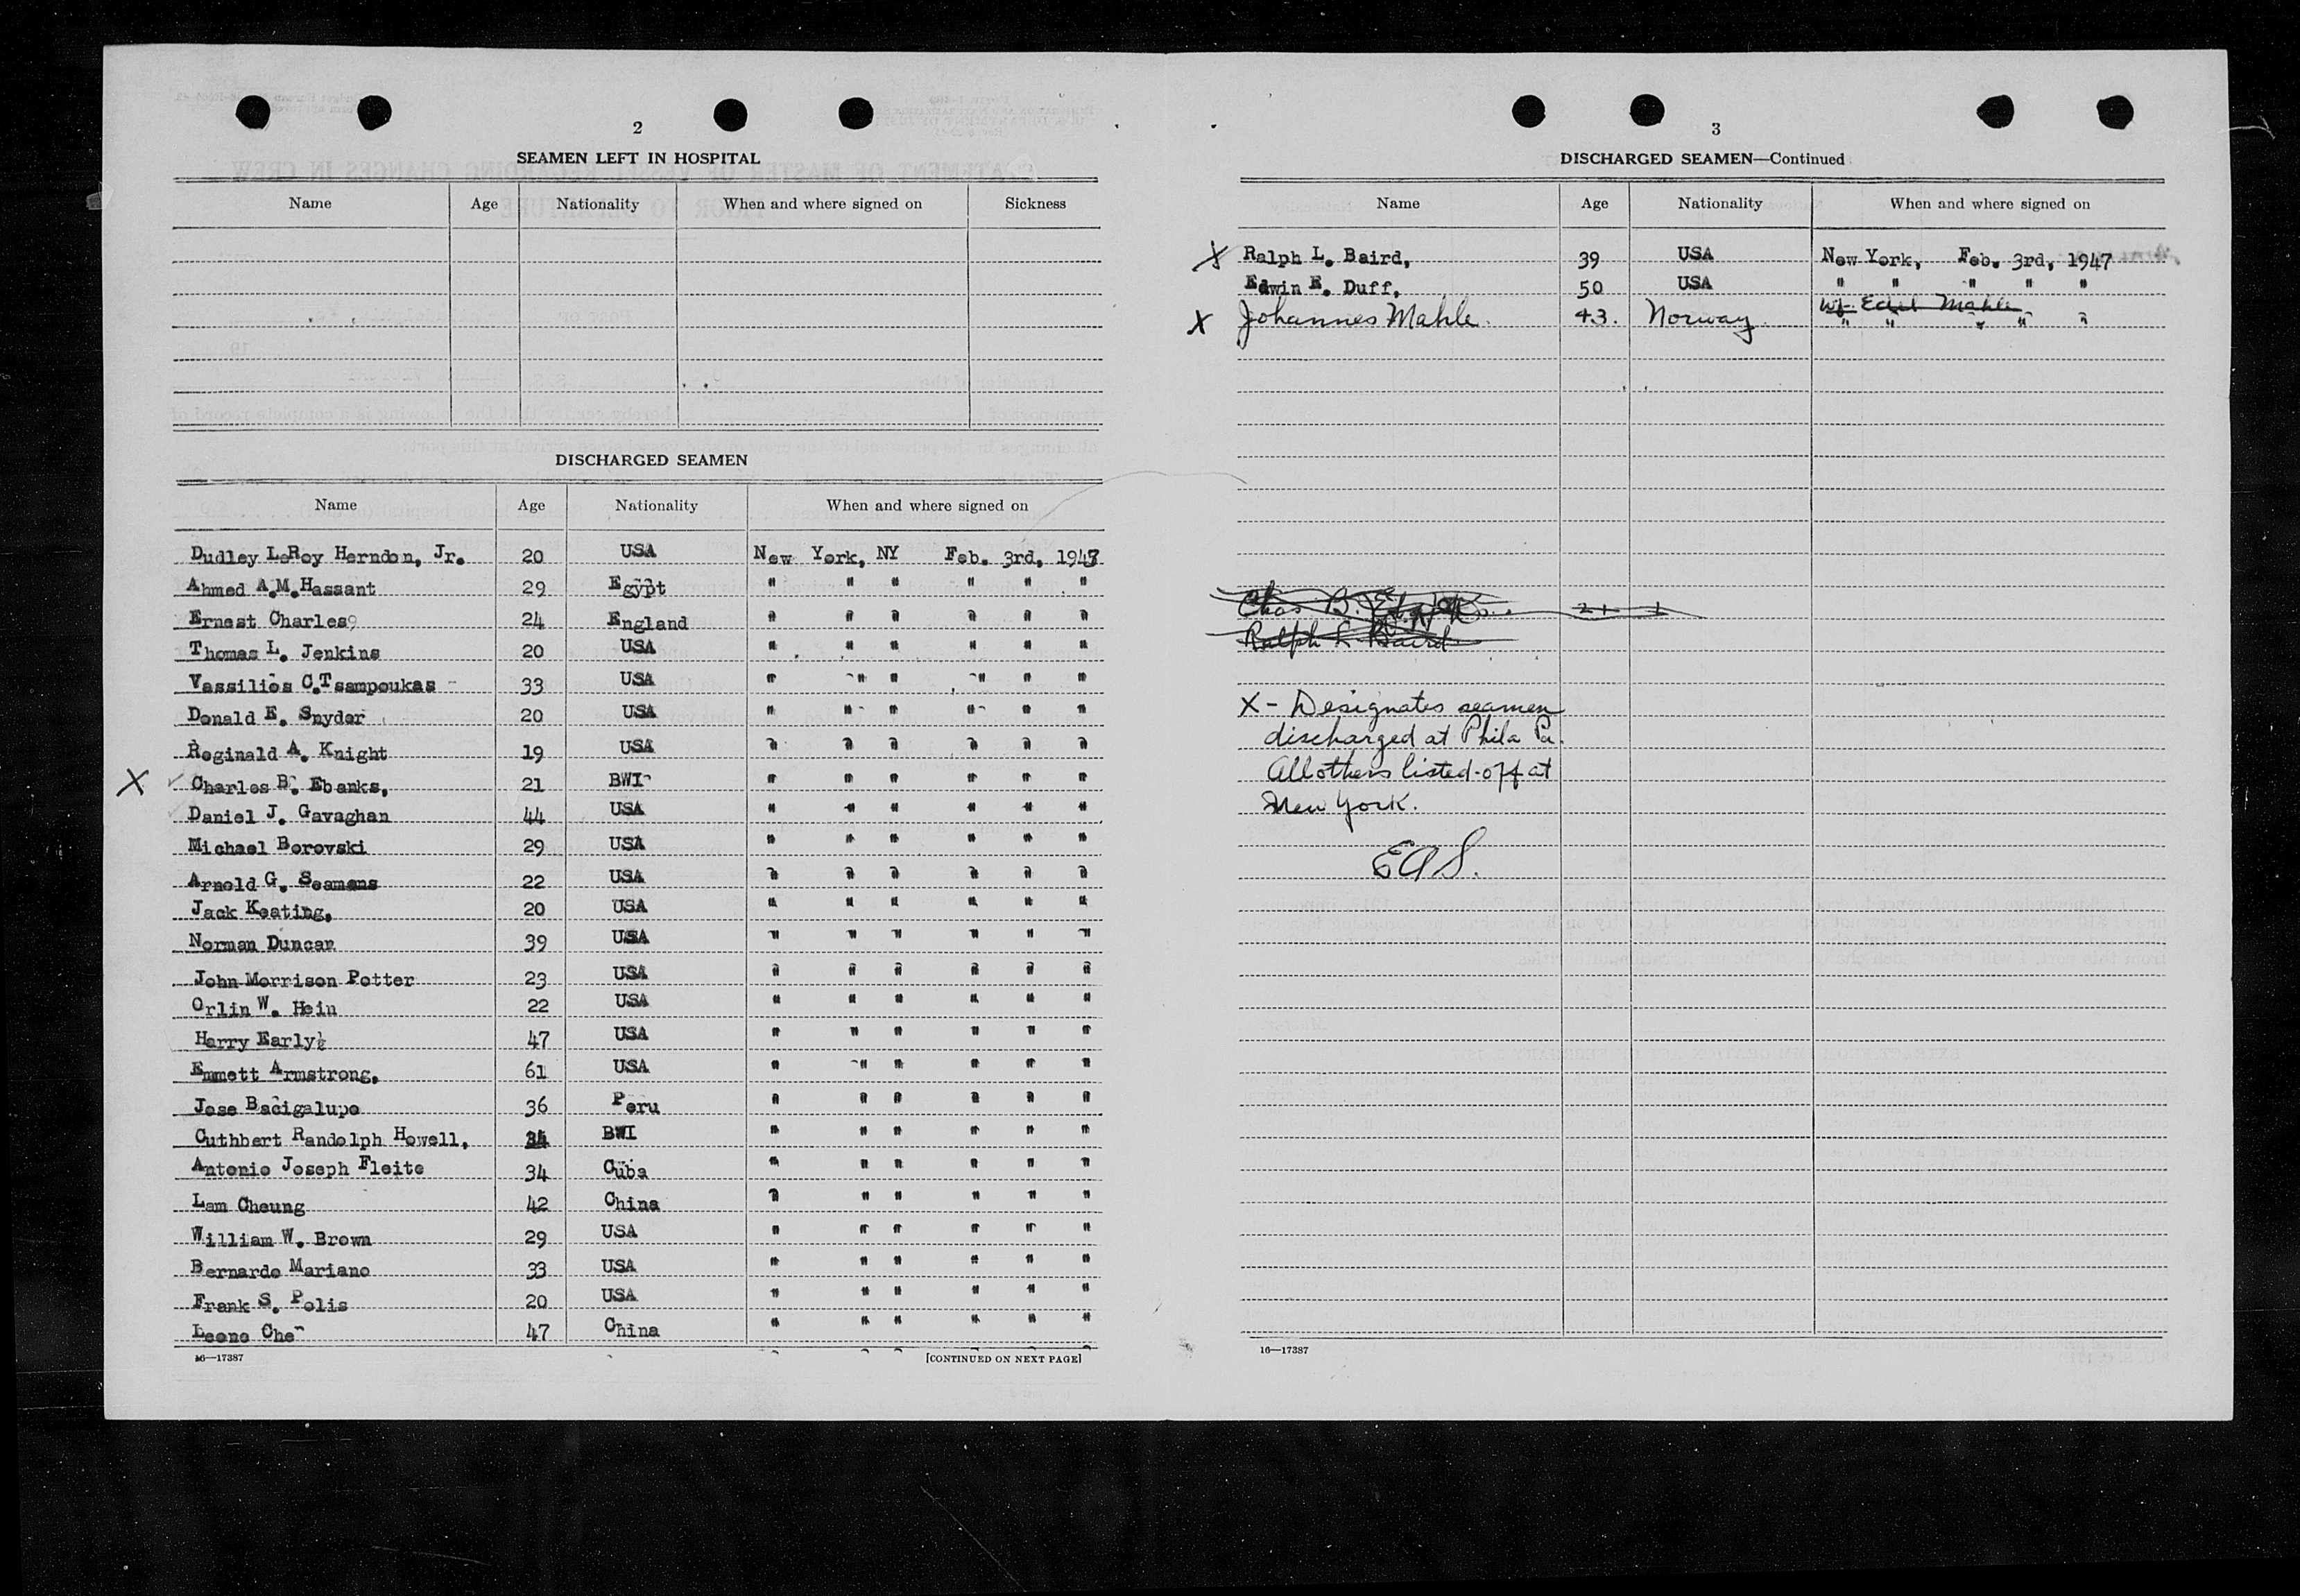 2
SEAMEN LEFT IN HOSPITAL
Name Age Nationality When and where signed on Sickness
DISCHARGED SEAMEN
Name Age Nationality When and where signed on
Dudley LeRoy Herndon, Jr. 20 USA New York, NY Feb. 3rd, 1947
Ahmed A.M.Hassant 29 Egypt " " " " " "
Ernest Charles 24 England " " " " " "
Thomas L. Jenkins 20 USA " " " " " "
Vassilios C.Tsampoukas 33 USA " " " " " "
Donald E. Snyder 20 USA " " " " " "
Reginald A. Knight 19 USA " " " " " "
X Charles B. Ebanks, 21 BWI " " " " " "
Daniel J. Gavaghan 44 USA " " " " " "
Michael Borovski 29 USA " " " " " "
Arnold G. Seamans 22 USA " " " " " "
Jack Keating, 20 USA " " " " " "
Norman Duncan 39 USA " " " " " "
John Morrison Potter 23 USA " " " " " "
Orlin W. Hein 22 USA " " " " " "
Harry Early 47 USA " " " " " "
Emmett Armstrong, 61 USA " " " " " "
Jose Bacigalupo 36 Peru " " " " " "
Cuthbert Randolph Howell, BWI " " " " " "
Antonio Joseph Fleite 34 Cuba " " " " " "
Lam Cheung 42 China " " " " " "
William W. Brown 29 USA " " " " " "
Bernardo Mariano 33 USA " " " " " "
Frank S. Polis 20 USA " " " " " "
Leong Che 47 China " " " " " "
16—17387 [CONTINUED ON NEXT PAGE]
3
DISCHARGED SEAMEN—Continued
Name Age Nationality When and where signed on
X Ralph L. Baird, 39 USA New York, Feb. 3rd, 1947
Edwin E. Duff, 50 USA " " " " "
X Johannes Mahle. 43. Norway " " " " "
Chas B.
Ralph L Baird
X - Designates seamen
discharged at Phila Pa.
All others listed-off at
New York.
EAS.
16—17387